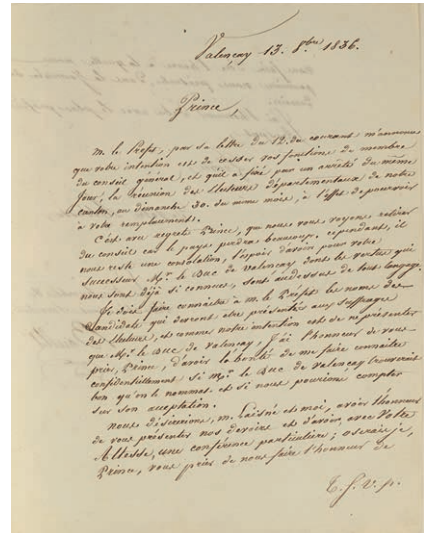 Valençay 13. 8bre 1836.
Prince,
M. le Préfet, par sa lettre du 12. du courant m'annonce
que votre intention est de cesser vos fonctions de membre
du conseil général, et qu'il a fixé par un arrêté du même
jour, la réunion des Electeurs départementaux de notre
canton, au dimanche 30. du même mois, à l'effet de pourvoir
à votre remplacement.
C'est avec regrets Prince, que nous vous voyons retirer
du conseil car le pays perdra beaucoup, cependant, il
nous reste une consolation, l'espoir d'avoir pour votre
successeur Mgr. le Duc de Valençay dont les vertus qui
nous sont déjà si connues, sont audessus de tout langage.
Je dois faire connaître à M. le Préfet le nom des
Candidats qui devront être présentés aux suffrages
des Electeurs, et comme notre intention est de ne présenter
que Mgr. le Duc de Valençay, j'ai l'honneur de vous
prier, Prince, d'avoir la bonté de me faire connaître
confidentiellement si Mgr. le Duc de Valençay trouverait
bon qu'on le nommat et si nous pourrions compter
sur son acceptation.
Nous désirerions, M. et moi, avoir l'honneur
de vous présenter nos devoirs et d'avoir, avec Votre
Altesse, une conférence particulière; oserais-je,
Prince, vous prier de nous faire l'honneur de
T. S. V. p.